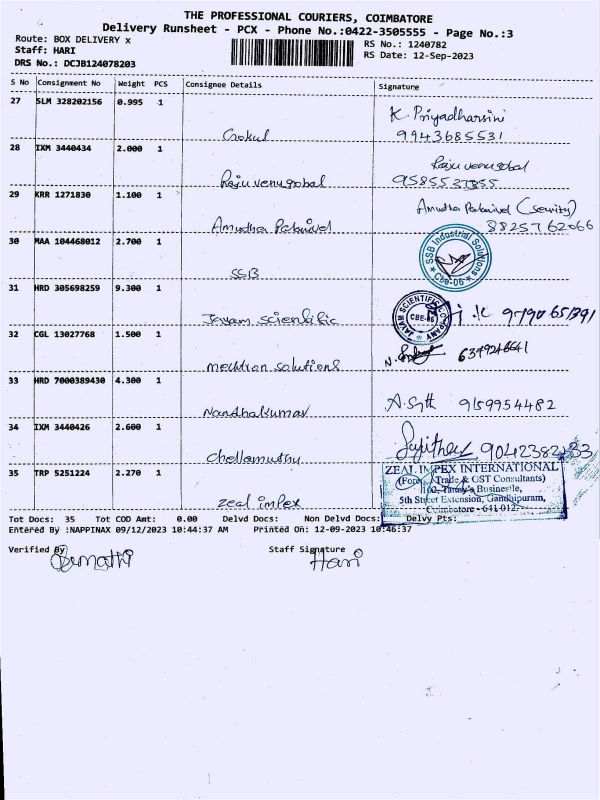 THE PROFESSIONAL COURIERS, COIMBATORE
Delivery Runsheet - PCX - Phone No.:0422-3505555 - Page No.:3
Route: BOX DELIVERY x
RS No.: 1240782
Staff: HARI
RS Date: 12-Sep-2023
DRS No.: DCJB124078203
S No Consignment No Weight PCS Consignee Details Signature
27 SLM 328202156 0.995 1
K. Priyadharsini
Gokul 9943685531
28 IXM 3440434 2.000 1
Raju venugobal
Raju venugobal
29 KRR 1271830 1.100 1
Amutha
Amutha
30 MAA 104468012 2.700 1
SSB Industrial Solutions
* Cbe-06 *
SSB
31 HRD 305698259 9.300 1
JAYAM SCIENTIFIC COMPANY
CBE-
Jayam scientific
32 CGL 13027768 1.500 1
mechtron solutions
33 HRD 7000389430 4.300 1
9159954482
Nandhakumar
34 IXM 3440426 2.600 1
Chellamuthu
35 TRP 5251224 2.270 1
ZEAL IMPEX INTERNATIONAL
Trade & GST Consultants)
5th Street Extension, Gandhipuram,
Coimbatore - 641 012.
zeal impex
Tot Docs: 35 Tot COD Amt: 0.00 Delvd Docs: Non Delvd Docs: Delvy Pts:
Entered By :NAPPINAX 09/12/2023 10:44:37 AM Printed On: 12-09-2023 10:46:37
Verified By Staff Signature
Hari